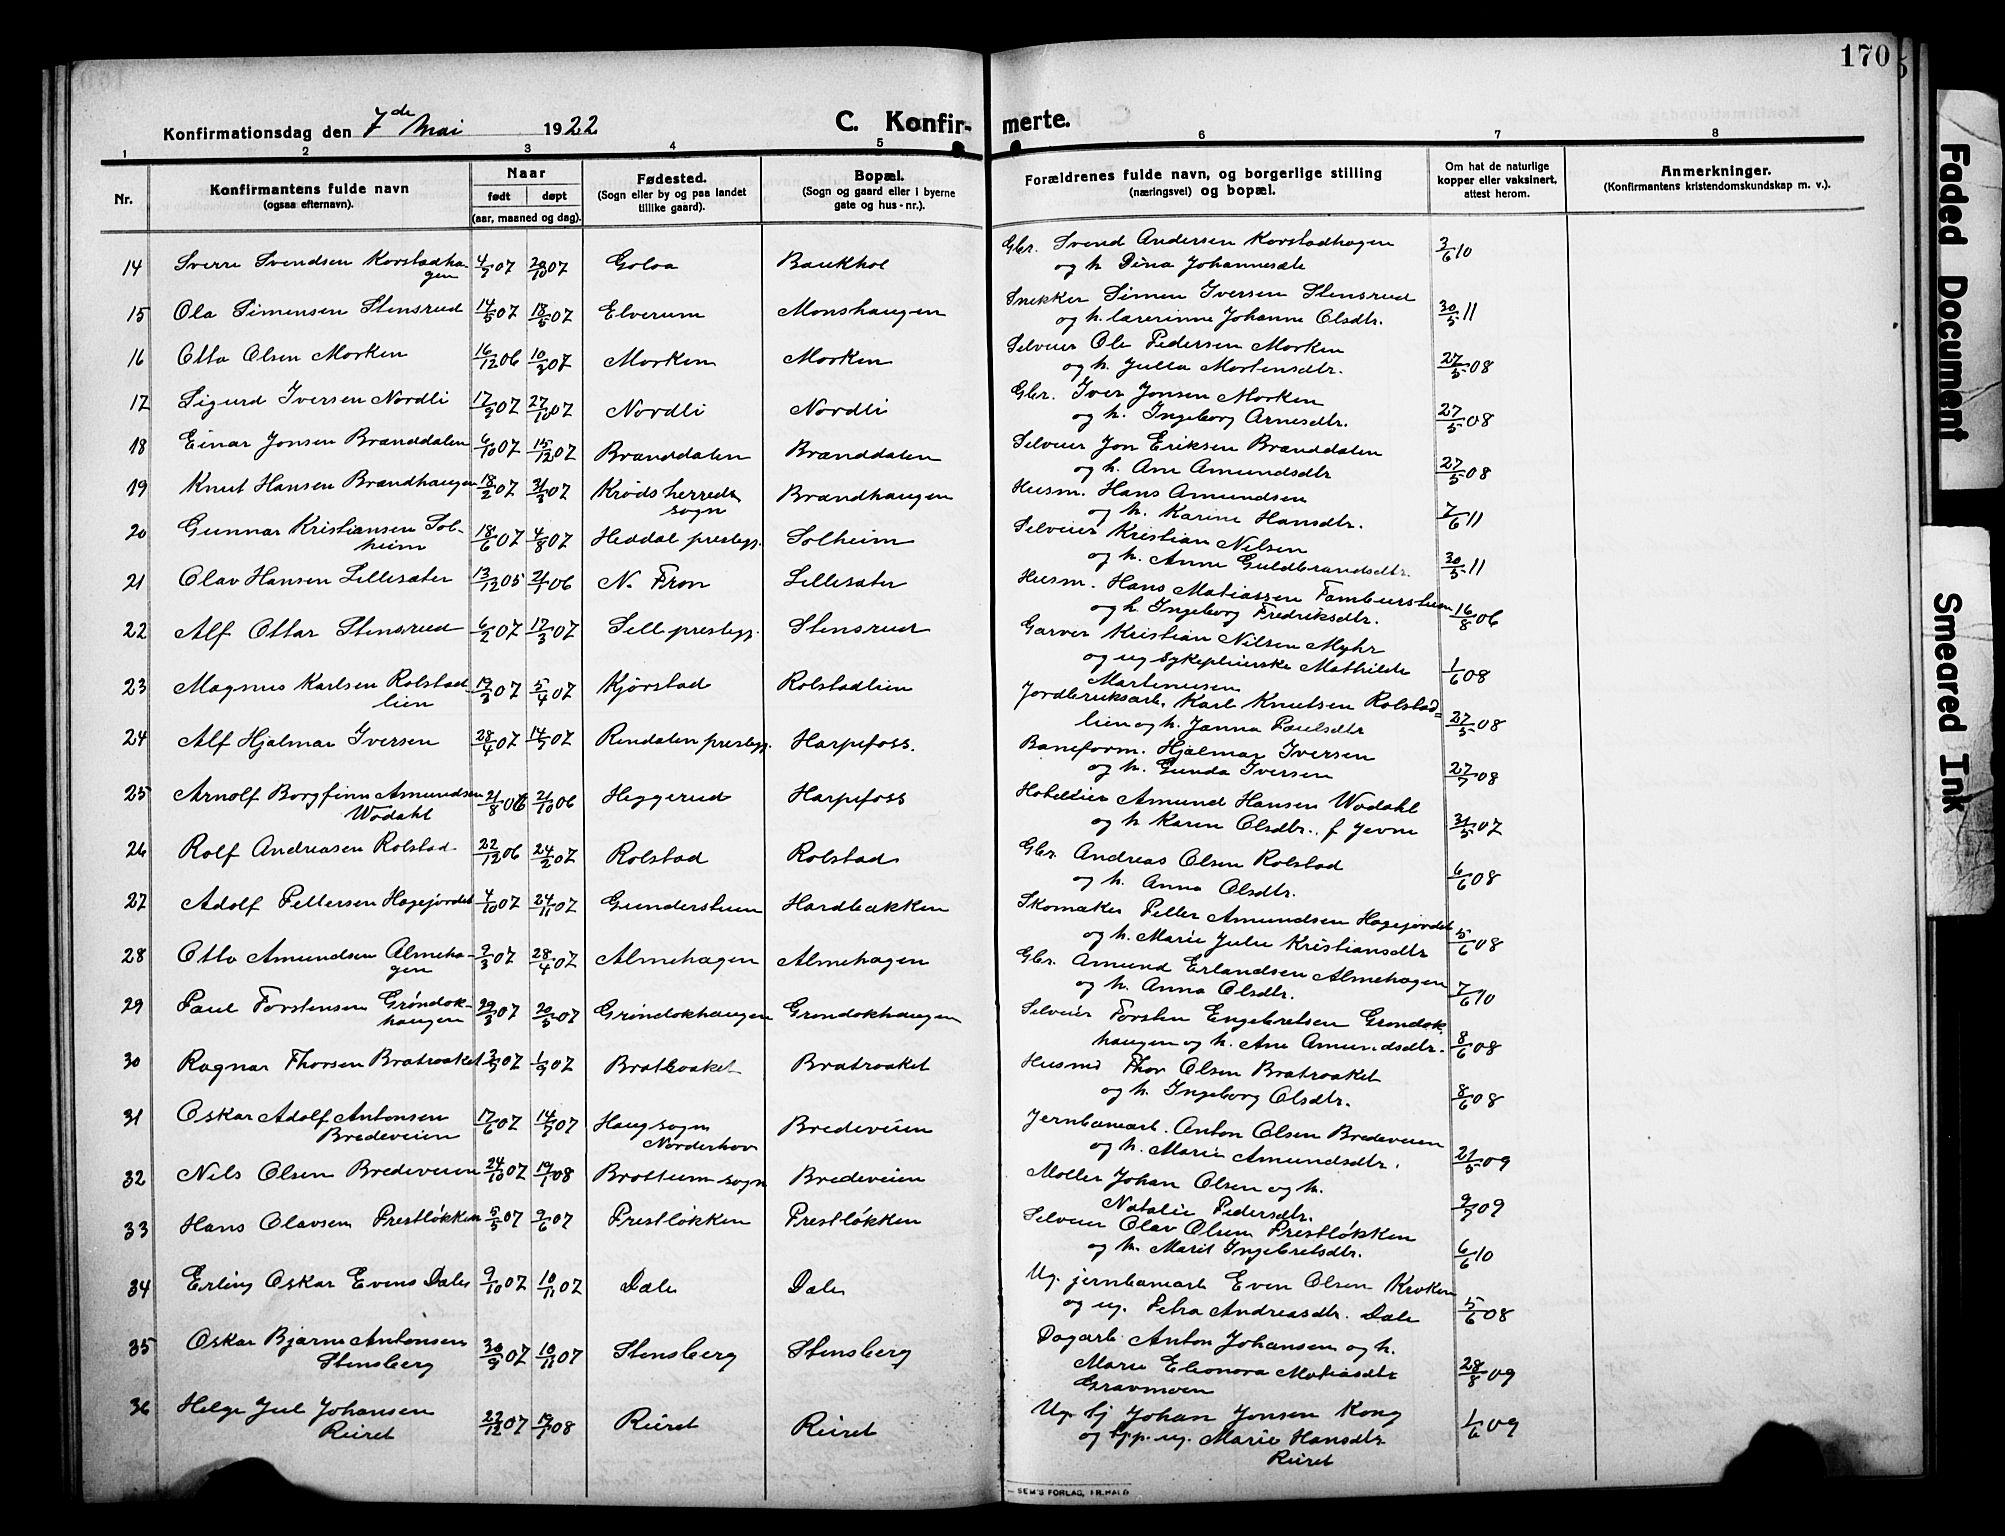 170
Faded Document
Smeared Ink
Konfirmationsdag den 7de Mai 1922
C. Konfir-
merte.
1 2 3 4 5 6 7 8
Nr.
Konfirmantens fulde navn
(ogsaa efternavn).
Naar
født døpt
(aar, maaned og dag).
Fødested.
(Sogn eller by og paa landet
tillike gaard).
Bopæl.
(Sogn og gaard eller i byerne
gate og hus-nr.).
Forældrenes fulde navn, og borgerlige stilling
(næringsvei) og bopæl.
Om hat de naturlige
kopper eller vaksinert,
attest herom.
Anmerkninger.
(Konfirmantens kristendomskundskap m. v.).
14 Sverre Svendsen Korstadha-
gen 07 07 Goloa Baukhol
Gbr. Svend Andersen Korstadhagen
og h. Dina Johannesdtr 3/6 10
15 Ola Simensen Stensrud 14/5 07 18/5 07 Elverum Monshaugen
Snekker Simen Iversen Stensrud
og h. lærerinne Johanne Olsdtr. 30/5 11
16 Otto Olsen Morken 16/12 06 10/3 07 Morken Morken
Selveier Ole Pedersen Morken
og h. Julla Mortensdtr. 27/5 08
17 Sigurd Iversen Nordli 17/9 07 27/10 07 Nordli Nordli
Gbr. Iver Jonsen Morken
og h. Ingeborg Arnesdtr. 27/5 08
18 Einar Jonsen Brænddalen 6/10 07 15/12 07 Brænddalen Brænddalen
Selveier Jon Eriksen Brænddalen
og h. Ane Amundsdtr 27/5 08
19 Knut Hansen Brændhaugen 18/2 07 31/3 07 Krødsherreds
sogn Brændhaugen
Husm. Hans Amundsen
og h. Karine Hansdtr. 7/6 11
20 Gunnar Kristiansen Sol-
heim 18/6 07 4/8 07 Heddal prestegj. Solheim
Selveier Kristian Nilsen
og h. Anne Guldbrandsdtr. 30/5 11
21 Olav Hansen Lillesæter 13/12 05 21/1 06 N. Fron Lillesæter
Husm. Hans Matiassen Tamburstuen
og h. Ingeborg Fredriksdtr. 16/8 06
22 Alf Ottar Stensrud 6/2 07 17/3 07 Sell prestegj. Stensrud
Garver Kristian Nilsen Myhr
og ug sykepleierske Mathilde
Martinusen 1/6 08
23 Magnus Karlsen Rolstad
lien 07 5/4 07 Kjørstad Rolstadlien
Jordbruksarb. Karl Knutsen Rolstad=
lien og h. Janna Paulsdtr 27/5 08
24 Alf Hjalmar Iversen 28/4 07 14/7 07 Rendalen prestegj. Harpefoss.
Baneform. Hjalmar Iversen
og h. Gunda Iversen 27/7 08
25 Arnolf Borgfinn Amundsen
Wodahl 21/8 06 21/10 06 Heggerud Harpefoss
Hoteleier Amund Hansen Wodahl
og h Karen Olsdtr. f Jevne 31/5 07
26 Rolf Andreasen Rolstad 22/12 06 24/2 07 Rolstad Rolstad
Gbr. Andreas Olsen Rolstad
og h. Anna Olsdtr. 6/6 08
27 Adolf Pettersen Hagejordet 4/10 07 24/11 07 Gunderstuen Hardbakken
Skomaker Petter Amundsen Hagejordet
og h. Marie Julie Kristiansdtr 5/6 08
28 Otto Amundsen Almeha-
gen 2/3 07 28/4 07 Almehagen Almehagen
Gbr. Amund Erlandsen Almehagen
og h. Anna Olsdtr. 7/6 10
29 Paul Torstensen Grøndok-
haugen 29/3 07 20/5 07 Grøndokhaugen Grøndokhaugen
Selveier Torsten Engebretsen Grøndok
haugen og h. Ane Amundsdtr. 8/6 08
30 Ragnar Thorsen Bratraaket 07 1/9 07 Bratraaket Bratraaket
Husmd Thor Olsen Bratraaket
og h. Ingeborg Olsdtr. 8/6 08
31 Oskar Adolf Antonsen
Bredeveien 17/6 07 14/7 07 Haug sogn
Norderhov Bredeveien
Jernbanearb. Anton Olsen Bredeveien
og h. Marie Amundsdtr. 21/5 09
32 Nils Olsen Bredeveien 24/10 07 19/1 08 Brøttum sogn Bredeveien
Møller Johan Olsen og h.
Natalie Pedersdtr. 9/7 09
33 Hans Olavsen Prestløkken 5/5 07 9/6 07 Prestløkken Prestløkken
Selveier Olav Olsen Prestløkken
og h. Marit Ingebretsdtr. 6/6 10
34 Erling Oskar Evens Dale 9/10 07 10/11 07 Dale Dale
Ug. jernbanearb Even Olsen Kroken
og ug. Petra Andreasdtr. Dale 5/6 08
35 Oskar Bjarne Antonsen
Stensberg 30/9 07 10/11 07 Stensberg Stensberg
Dagarb. Anton Johansen og h.
Marie Eleonora Matiasdtr
Gravmoen 28/8 09
36 Helge Jul Johansen
Ruret 22/12 07 08 Ruret Ruret
Ug. tj Johan Jonsen Kong
og ug. Marie Hansdtr
Ruret 1/6 09
SEM'S FORLAG, FR.HALD